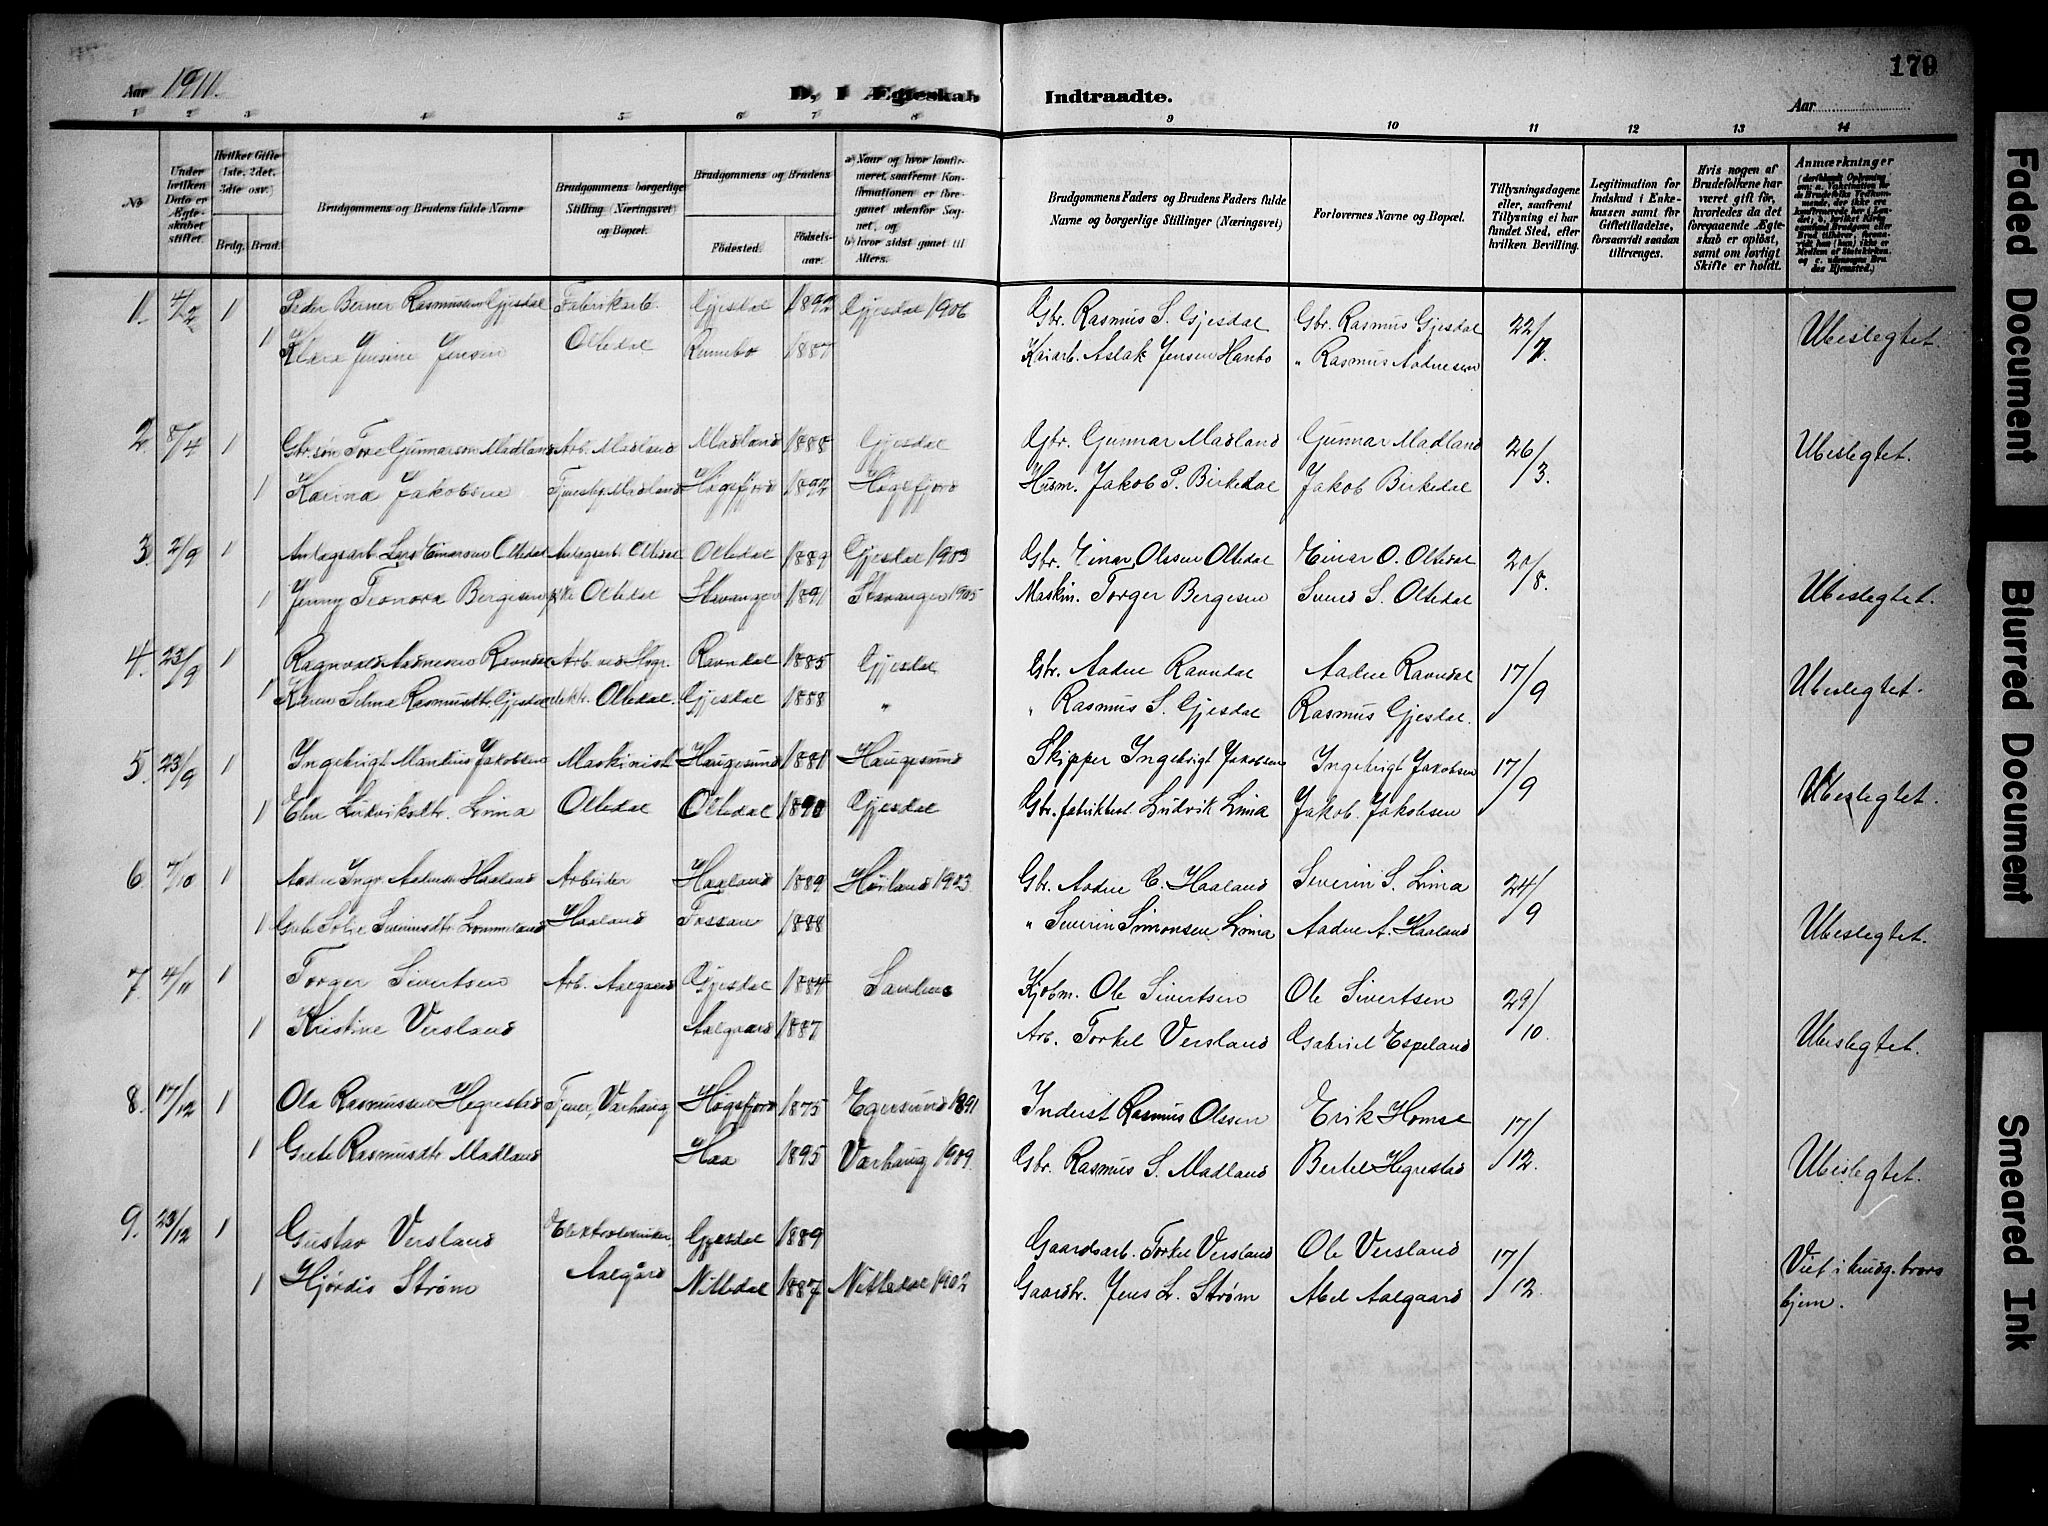 Aar 1911.
D, I Ægteskab Indtraadte.
Aar
179
1 2 3 4 5 6 7 8 9 10 11 12 13 14
No
Under hvilken Dato er Ægteskabet stiftet.
Hvilket Gifte (1ste, 2det, 3die osv.)
Brdg. Brud.
Brudgommens og Brudens fulde Navne
Brudgommens borgerlige Stilling (Næringsvei) og Bopæl.
Brudgommens og Brudens
Fødested.
Fødselsaar.
a) Naar og hvor konfirmeret, saafremt Konfirmationen er foregaaet udenfor Sognet, og
b) hvor sidst gaaet til Alters.
Brudgommens Faders og Brudens Faders fulde Navne og borgerlige Stillinger (Næringsvei)
Forlovernes Navne og Bopæl.
Tillysningsdagene eller, saafremt Tillysning ei har fundet Sted, efter hvilken Bevilling.
Legitimation for Indskud i Enkekassen samt for Giftetilladelse, forsaavidt saadan tiltrænges.
Hvis nogen af Brudefolkene har været gift før, hvorledes da det foregaaende Ægteskab er opløst, samt om lovligt Skifte er holdt.
Anmærkninger
1. 4/2 1 Peder Berner Rasmussen Gjesdal Fabrikarb. Gjesdal 1892 Gjesdal 1906 Gbr. Rasmus S. Gjesdal Gbr. Rasmus Gjesdal 22/7. Ubeslegtet.
1 Klara Jensine Jensen Oltedal Rennebo 1887 Kaiarb. Aslak Jensen Hanto " Rasmus Aadnesen
2. 8/4 1 Gbr.søn Tore Gunnarson Madland Arb. Madland Madland 1888 Gjesdal Gbr. Gunnar Madland Gunnar Madland 26/3. Ubeslegtet.
1 Karina Jakobsen Madland Høgsfjord 1892 Høgsfjord Husm. Jakob P. Birkedal Jakob Birkedal
3. 2/9 1 Anlægsarb. Lars Einarsen Oltedal Anlægsarb. Oltedal Oltedal 1889 Gjesdal 1903 Gbr. Einar Olssen Oltedal Einar O. Oltedal 20/8. Ubeslegtet.
1 Jenny Teonora Bergesen Oltedal Stavanger 1891 Stavanger 1905 Maskin. Torger Bergesen Svend S. Oltedal
4. 23/9 1 Ragnvald Aadnesen Ravndal Arb. ved Høgr. Ravndal 1885 Gjesdal Gbr. Aadne Ravndal Aadne Ravndal 17/9 Ubeslegtet.
1 Karen Selma Rasmusdtr. Gjesdal elektr. Oltedal. Gjesdal 1888 " " Rasmus S. Gjesdal Rasmus Gjesdal.
5. 23/9 1 Ingebrigt Mantius Jakobsen Maskinist Haugesund 1881 Haugesund Skipper Ingebrigt Jakobsen Ingebrigt Jakobsen 17/9 Ubeslegtet.
1 Elen Ludviksdtr. Lima Oltedal Oltedal 1890 Gjesdal Gbr. fabrikbest. Ludvik Lima Jakob Jakobsen
6. 7/10 1 Aadne Ingv. Aadnesen Haaland Arbeider Haaland 1889 Høiland 1903 Gbr. Aadne C. Haaland Severin S. Lima 24/9 Ubeslegtet.
1 Grete Sofie Severinsdtr. Lommeland Haaland Fossan 1888 " Severin Simonsen Lima Aadne A. Haaland
7. 4/11 1 Torger Sivertsen Arb. Aalgaard Gjesdal 1884 Sandnes Kjøbm. Ole Sivertsen Ole Sivertsen 29/10. Ubeslegtet.
1 Kristine Versland Aalgaard 1887 Arb. Torkel Versland Gabriel Espeland
8. 17/12 1 Ole Rasmussen Hegrestad Tjener, Varhaug Høgsfjord 1875 Egersund 1891 Inderst Rasmus Olssen Erik Homse 17/12. Ubeslegtet.
1 Grete Rasmusdtr. Madland Haa 1895 Varhaug 1909. Gbr. Rasmus S. Madland Bertel Hegrestad
9. 23/12 1 Gustav Versland Elektrotekniker. Gjesdal 1889 Gaardsarb. Torkel Versland Ole Versland 17/12. Viet i brudg. brors hjem.
1 Hjørdis Strøm Aalgård Nittedal 1887 Nittedal 1902 Gaardbr. Jens L. Strøm Abel Aalgaard
Faded Document
Blurred Document
Smeared Ink